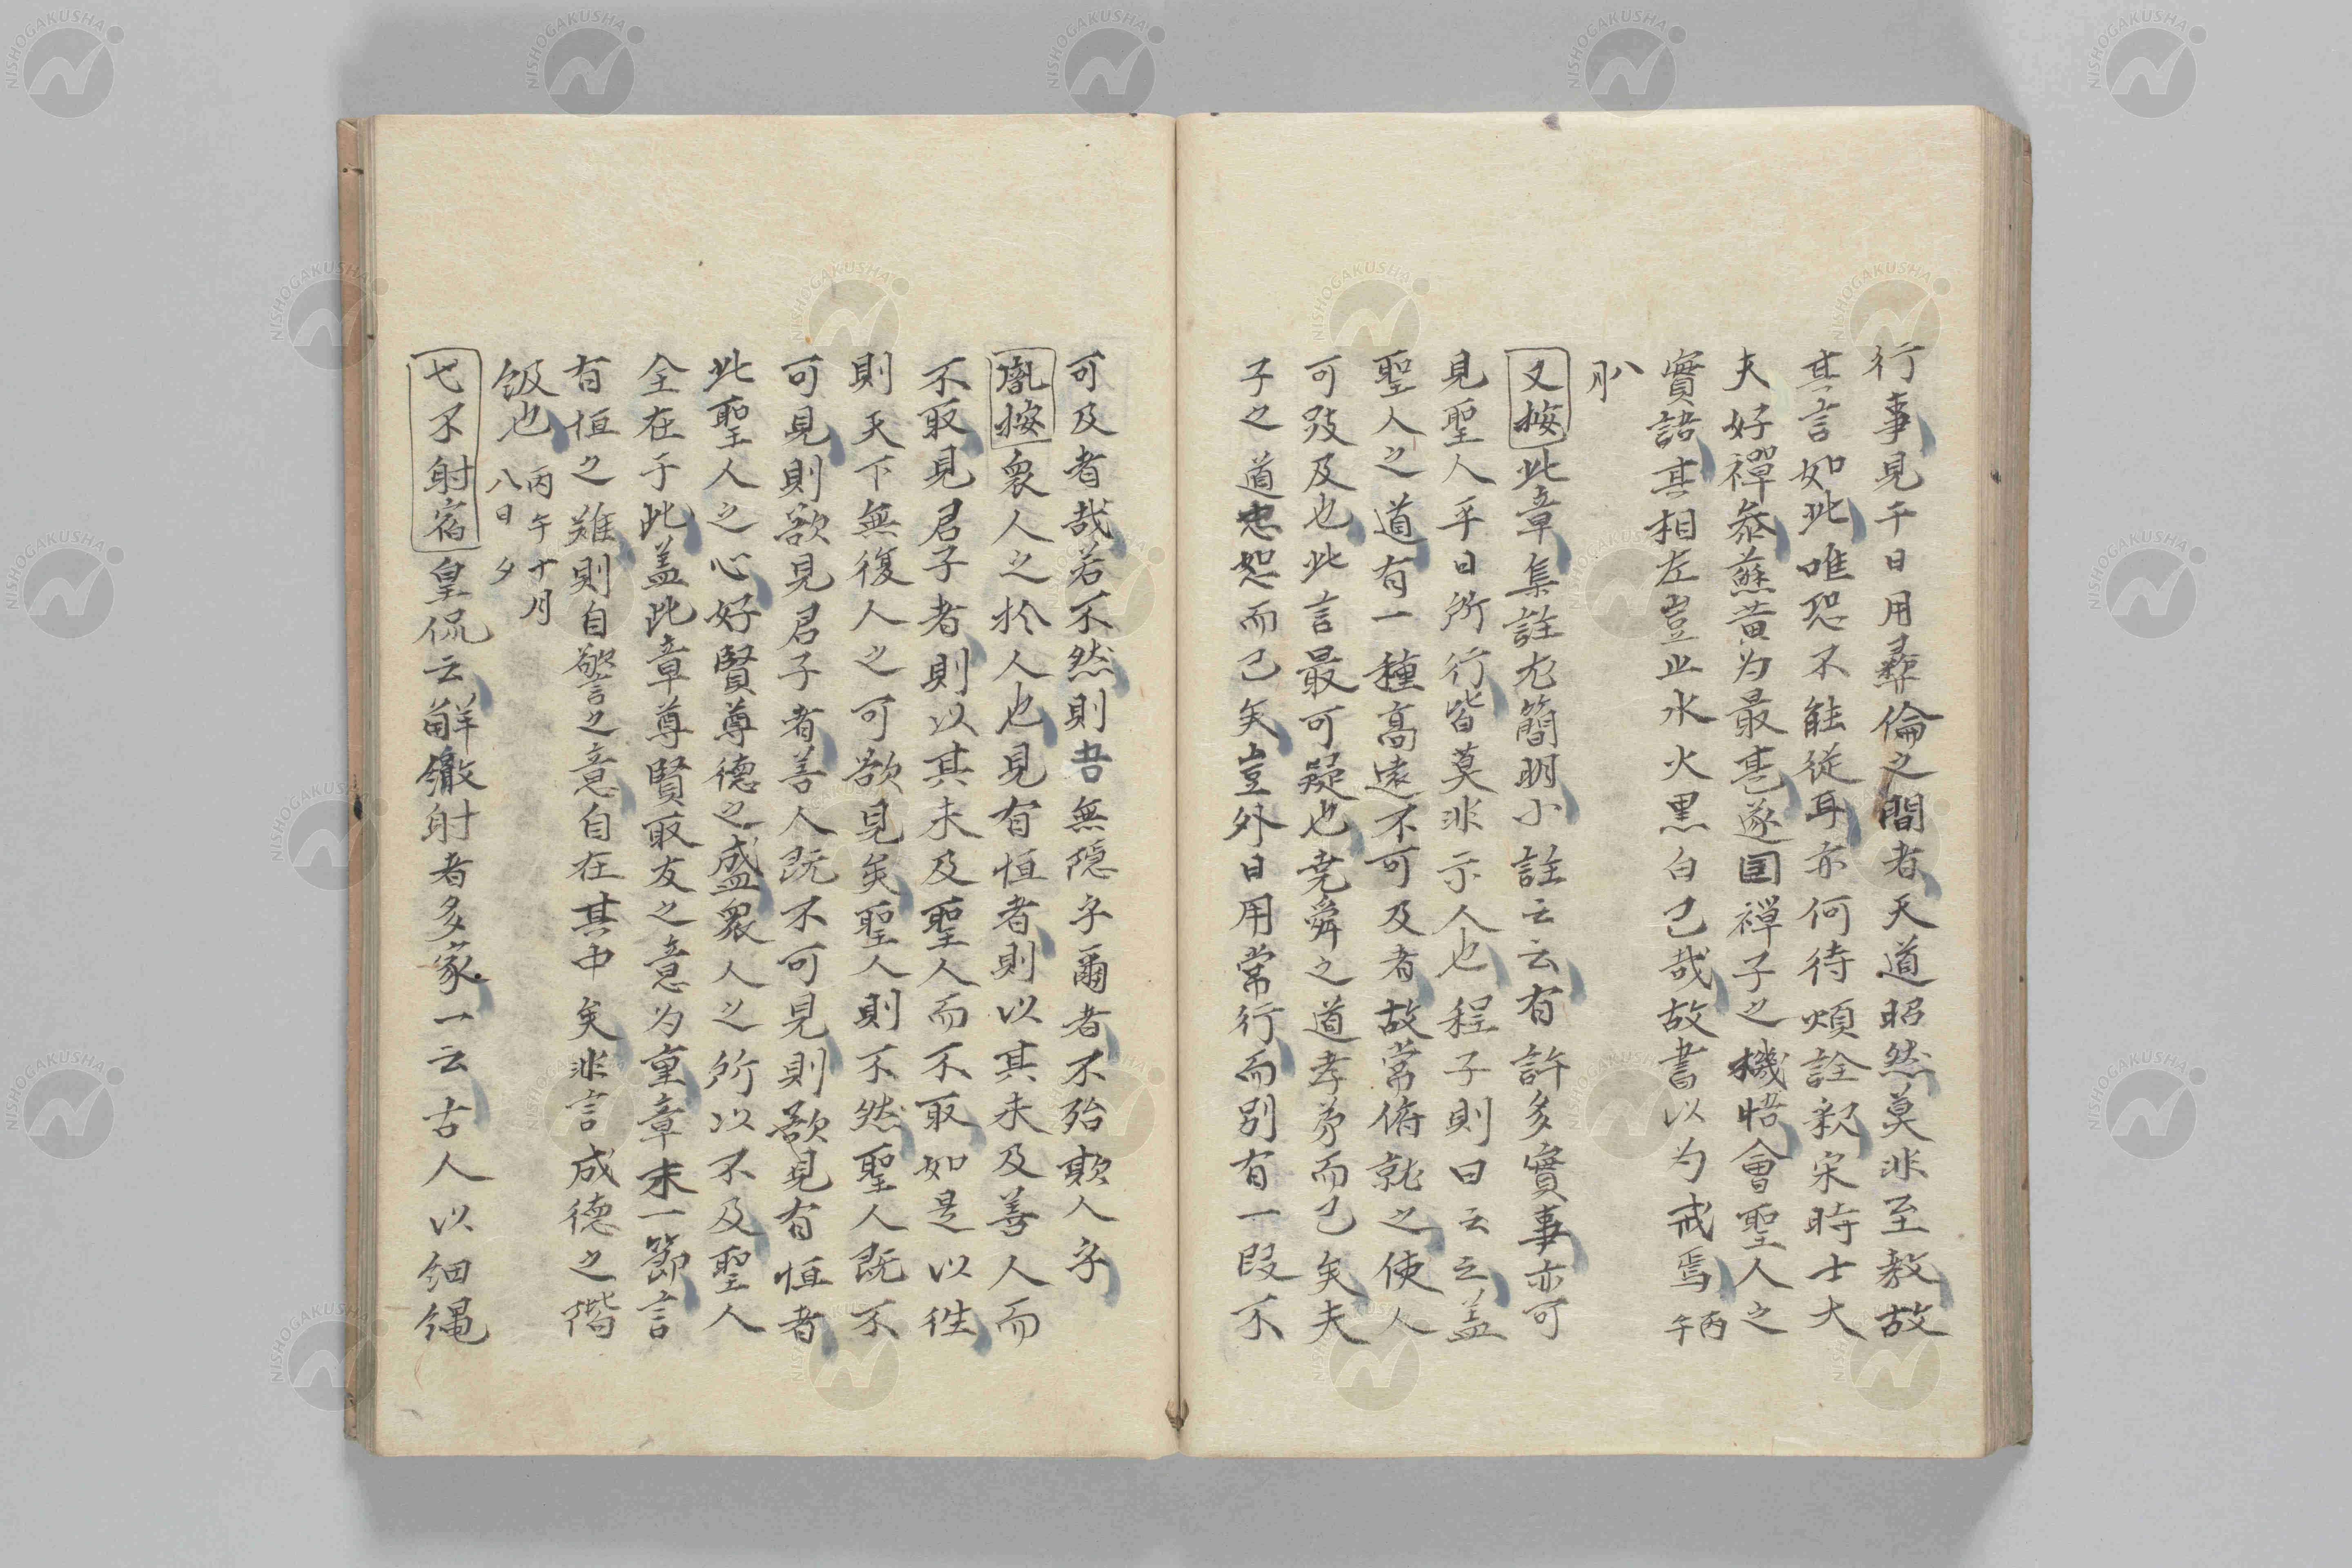 行事見于日用彝倫之間者天道昭然莫非至教故
其言如此唯恐不能從耳亦何待煩詮釈宋時士大
夫好禪叅蘇黄为最甚遂囯禅子之機悟會聖人之
實語其相左豈止水火黒白已哉故書以为戒焉丙午
八月
又按此章集註尤簡明小註云云有許多實事亦可
見聖人乎日所行皆莫非示人也程子則曰云云盖
聖人之道有一種高遠不可及者故常俯就之使人
可跂及也此言最可疑也尭舜之道孝弟而已矣夫
子之道忠恕而已矣豈外日用常行而别有一段不
可及者哉若不然則吾無隠乎爾者不殆欺人乎
胤按衆人之於人也見有恒者則以其未及善人而
不取見君子者則以其未及聖人而不取如是以徃
則天下無復人之可欲見矣聖人則不然聖人既不
可見則欲見君子者善人既不可見則欲見有恒者
此聖人之心好賢尊德之盛衆人之所以不及聖人
全在于此盖此章尊賢取友之意为重章末一節言
有恒之難則自警之意自在其中矣非言成德之階
级也丙午十月八日夕
弋不射宿皇侃云解徼射者多家一云古人以细縄
NISHOGAKUSHA